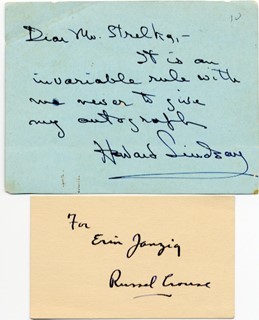 Dear Mr. Strelka,-
It is an
invariable rule with
me never to give
my autograph
Howard Lindsay
For
Erin Janzig
Russel Crouse